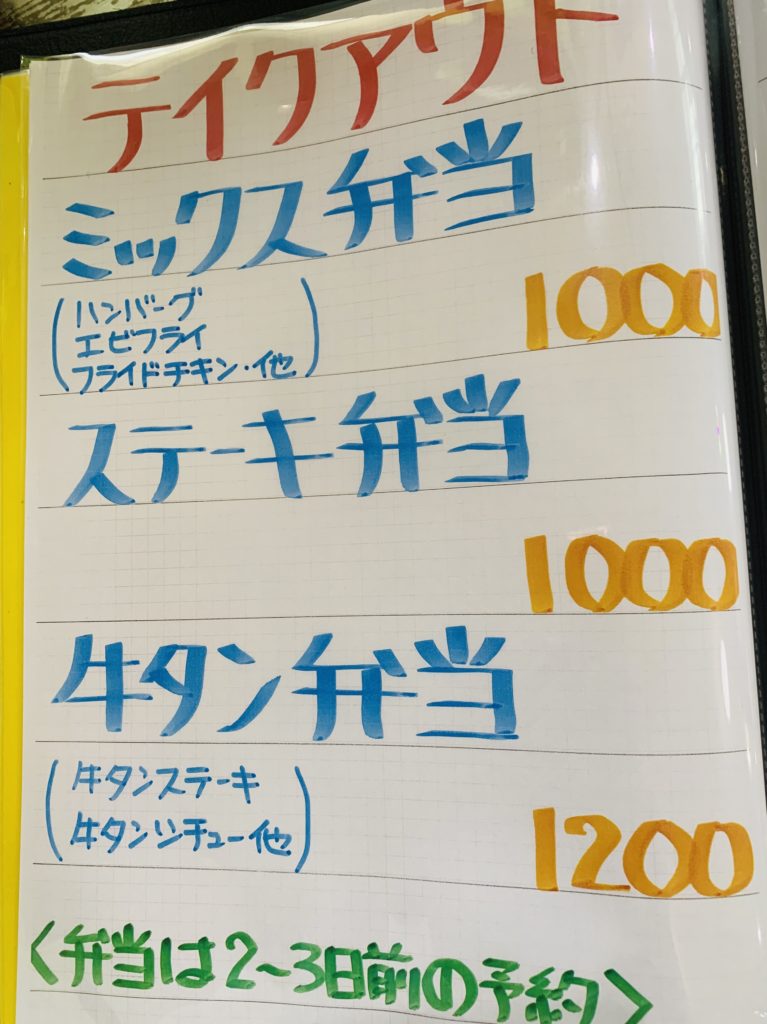 テイクアウト
ミックス弁当
(ハンバーグ
エビフライ
フライドチキン・他)
1000
ステーキ弁当
1000
牛タン弁当
(牛タンステーキ
牛タンシチュー他)
1200
〈弁当は2〜3日前の予約〉